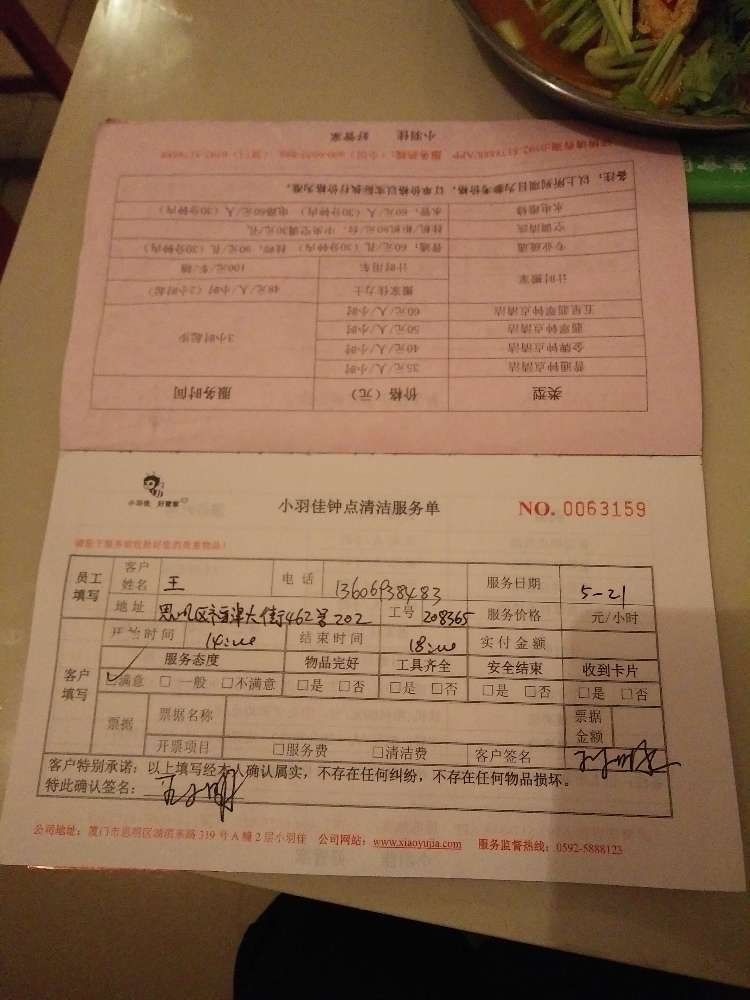 小羽佳 好管家
类型 价格（元） 服务时间
普通钟点清洁 35元/人/小时 3小时起步
金牌钟点清洁 40元/人/小时
翡翠钟点清洁 50元/人/小时
五星翡翠钟点清洁 60元/人/小时
计时搬家 搬家佳力士 48元/人/小时（2小时起）
计时用车 100元/车/趟
专业疏通 普通：60元/孔（30分钟内）
空调清洗 挂机/柜机80元/台，中央空调30元/孔
水电维修 水管：60元/人（30分钟内） 电路60元/人（30分钟内）
备注：以上所列项目为参考价格，订单价格以实际执行价格为准。
小羽佳 好管家
小羽佳钟点清洁服务单
NO. 0063159
员工填写 客户姓名 王 电话 13606938483 服务日期 5-21
地址 思明区 大街462号202 工号 208365 服务价格 元/小时
开始时间 14:00 结束时间 18:00 实付金额
客户填写 服务态度 物品完好 工具齐全 安全结束 收到卡片
☑满意 □一般 □不满意 □是 □否 □是 □否 □是 □否 □是 □否
票据 票据名称 票据金额
开票项目 □服务费 □清洁费 客户签名
客户特别承诺：以上填写经本人确认属实，不存在任何纠纷，不存在任何物品损坏。
特此确认签名：
公司地址：厦门市思明区湖滨东路319号A幢2层小羽佳 公司网站：www.xiaoyujia.com 服务监督热线：0592-5888123